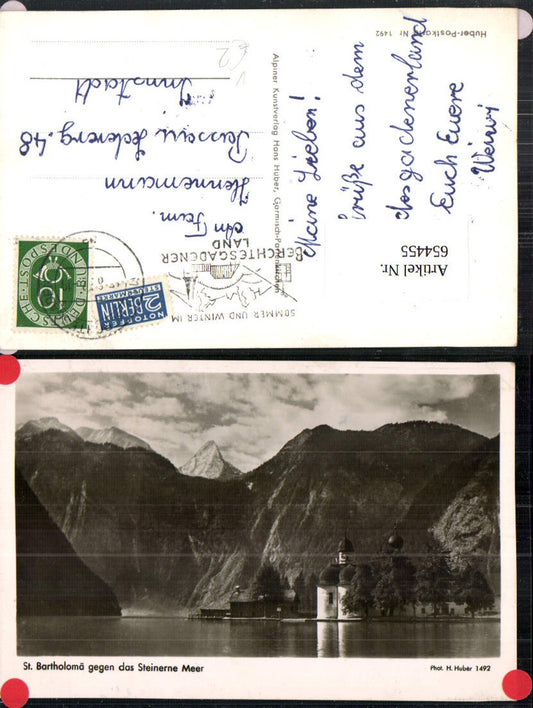 Huber-Postkarte Nr. 1492
Meine Lieben!
Grüße aus dem
Euch Eure
Alpiner Kunstverlag Hans Huber, Garmisch-Partenkirchen
Artikel Nr.
654455
SOMMER UND WINTER IM
BERCHTESGADENER
LAND
DEUTSCHE BUNDESPOST
10
NOTOPFER
2 BERLIN
STEUERMARKE
An Fam.
Hennemann
Passau Lederерg. 48
Innstadt
St. Bartholomä gegen das Steinerne Meer
Phot. H. Huber 1492